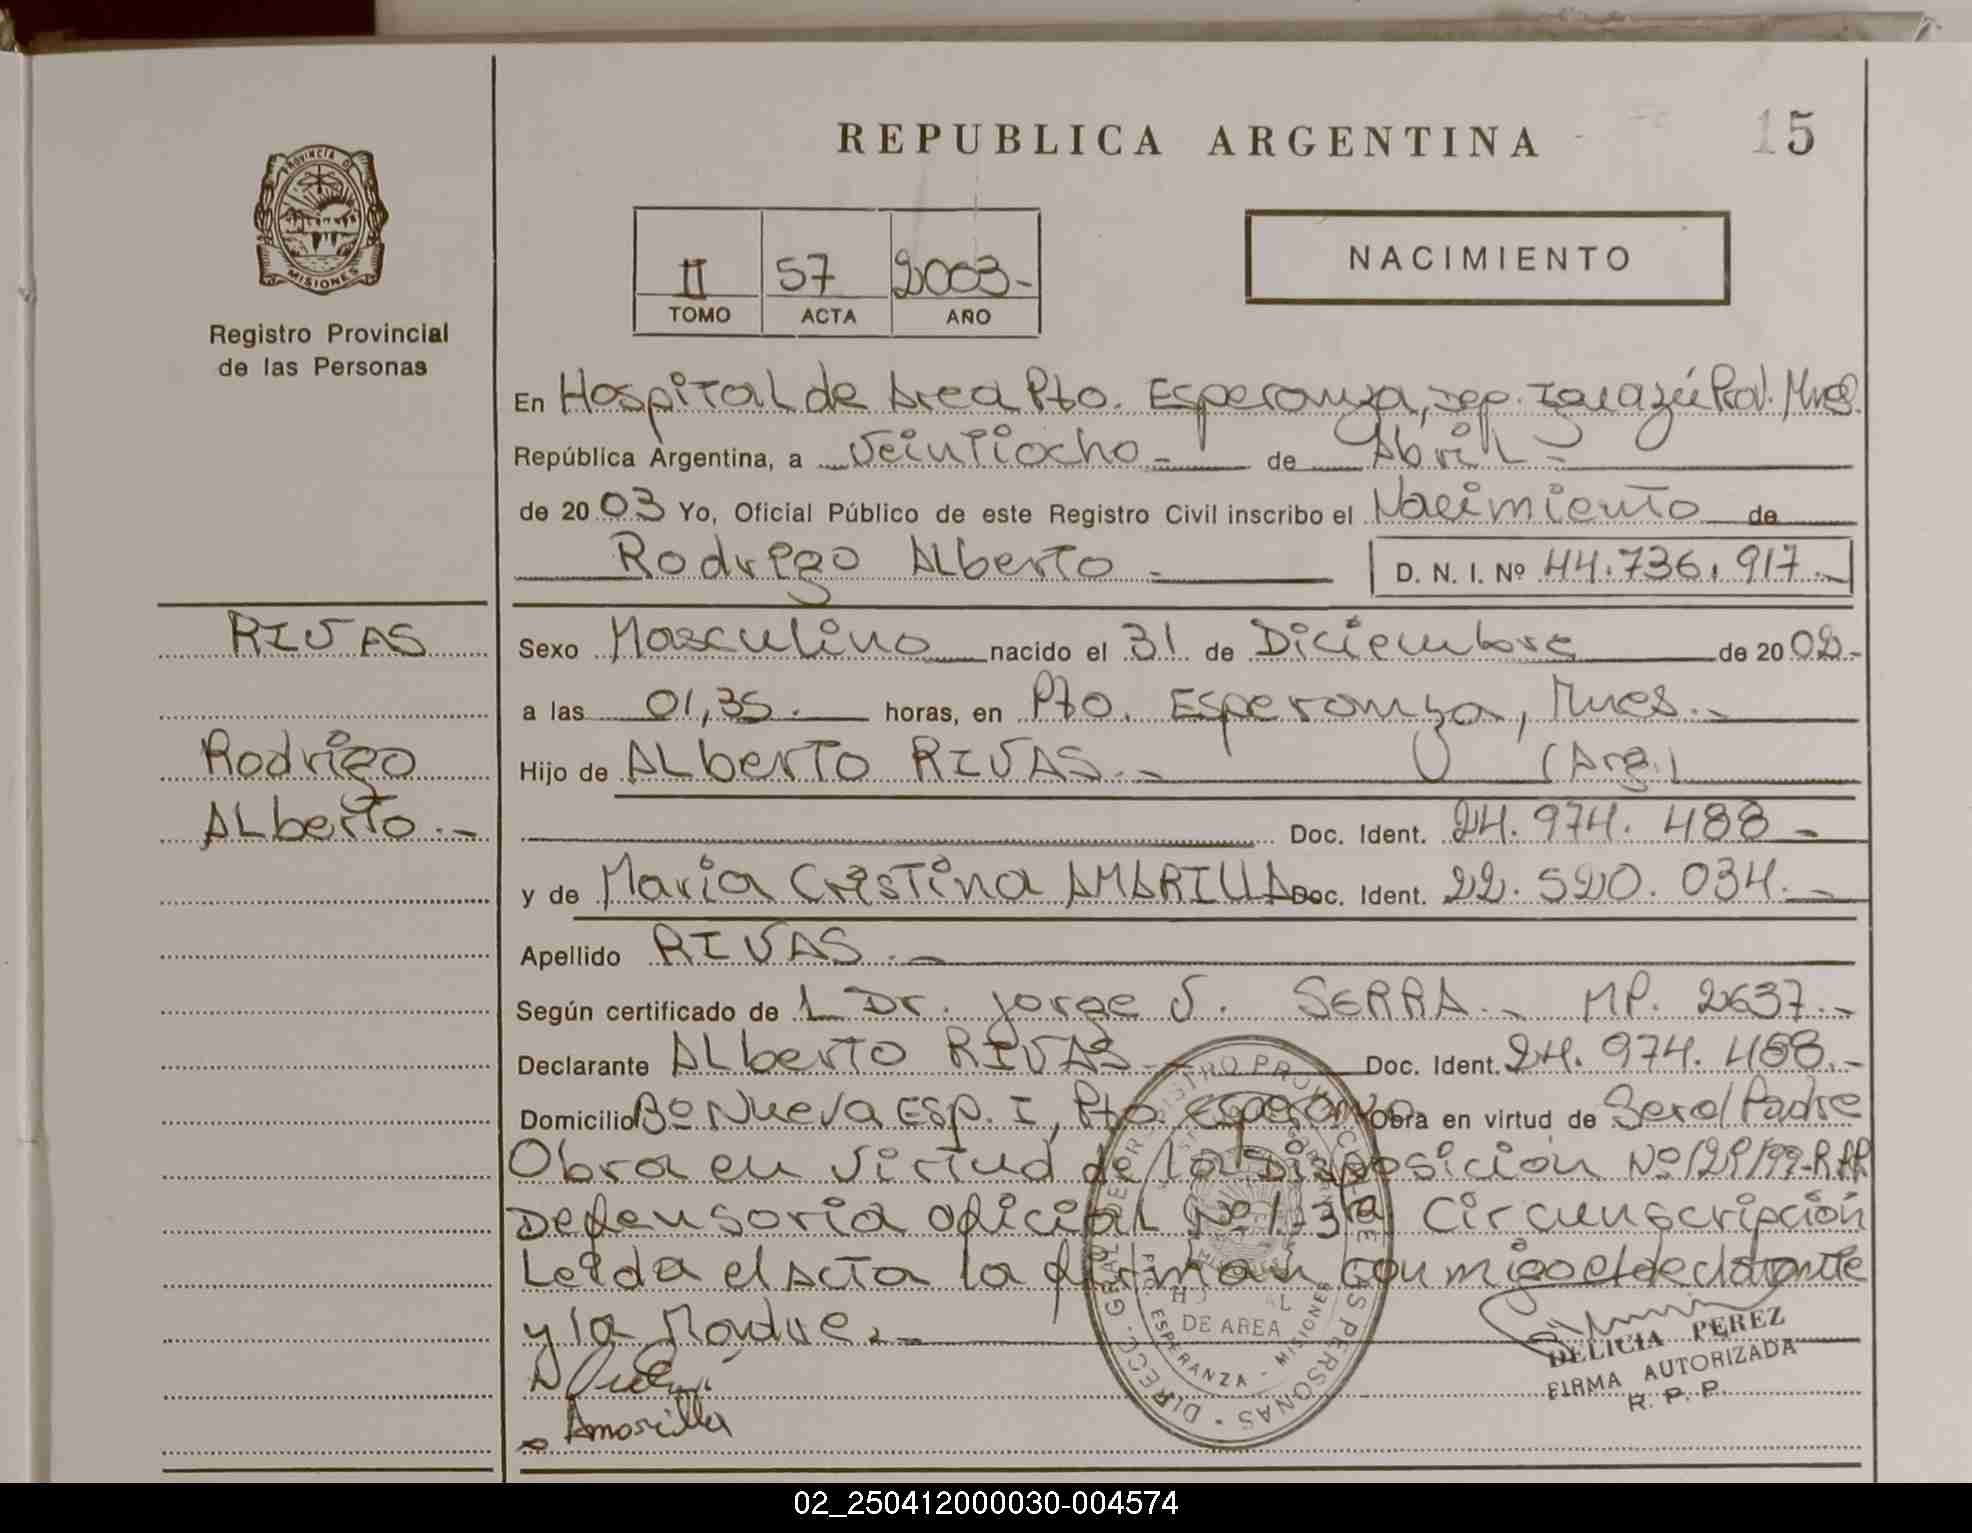 REPUBLICA ARGENTINA
15
PROVINCIA DE
MISIONES
Registro Provincial
de las Personas
II 57 2003-
TOMO ACTA AÑO
NACIMIENTO
En Hospital de Area Pto. Esperanza, Dep. Iguazú Prov. Mnes.
República Argentina, a Veintiocho - de Abril -
de 2003 Yo, Oficial Público de este Registro Civil inscribo el Nacimiento de
Rodrigo Alberto - D. N. I. Nº 44.736.917.-
RIVAS
Rodrigo
Alberto.-
Sexo Masculino nacido el 31 de Diciembre de 2002-
a las 01,35. horas, en Pto. Esperanza, Mnes.-
Hijo de Alberto RIVAS.- (Arg.)
Doc. Ident. 24.974.488-
y de Maria Cristina AMARILLA Doc. Ident. 22.520.034.-
Apellido RIVAS.-
Según certificado de 1 Dr. Jorge V. SERRA.- MP. 2637.-
Declarante Alberto RIVAS- Doc. Ident. 24.974.488.-
Domicilio Bº Nueva Esp. I, Pto. Esperanza Obra en virtud de Ser el Padre
Obra en virtud de la Disposición Nº 129/99-R.P.P
Defensoria oficial Nº 1-3ra Circunscripción
Leida el Acta la firman conmigo el declarante
y la Madre.-
Amarilla
DIRECC. GRAL. DE REGISTRO PROVINCIAL DE LAS PERSONAS
DE AREA
ESPERANZA - MISIONES
DELICIA PEREZ
FIRMA AUTORIZADA
R. P. P.
02_250412000030-004574